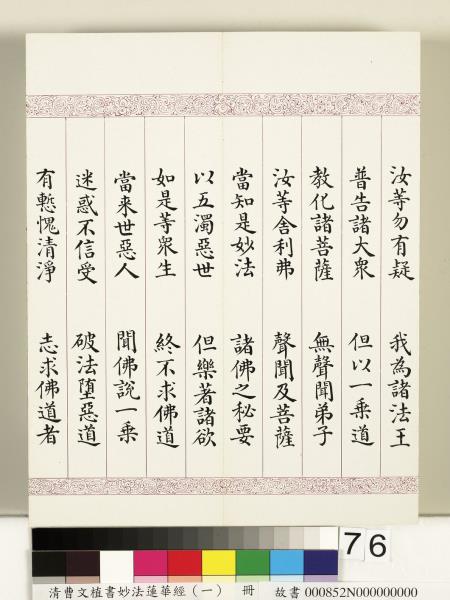 汝等勿有疑 我為諸法王
普告諸大衆 但以一乗道
教化諸菩薩 無聲聞弟子
汝等舎利弗 聲聞及菩薩
當知是妙法 諸佛之秘要
以五濁惡世 但樂著諸欲
如是等衆生 終不求佛道
當来世惡人 聞佛說一乗
迷惑不信受 破法堕惡道
有慙愧清淨 志求佛道者
76
清曹文植書妙法蓮華經（一） 冊 故書 000852N000000000